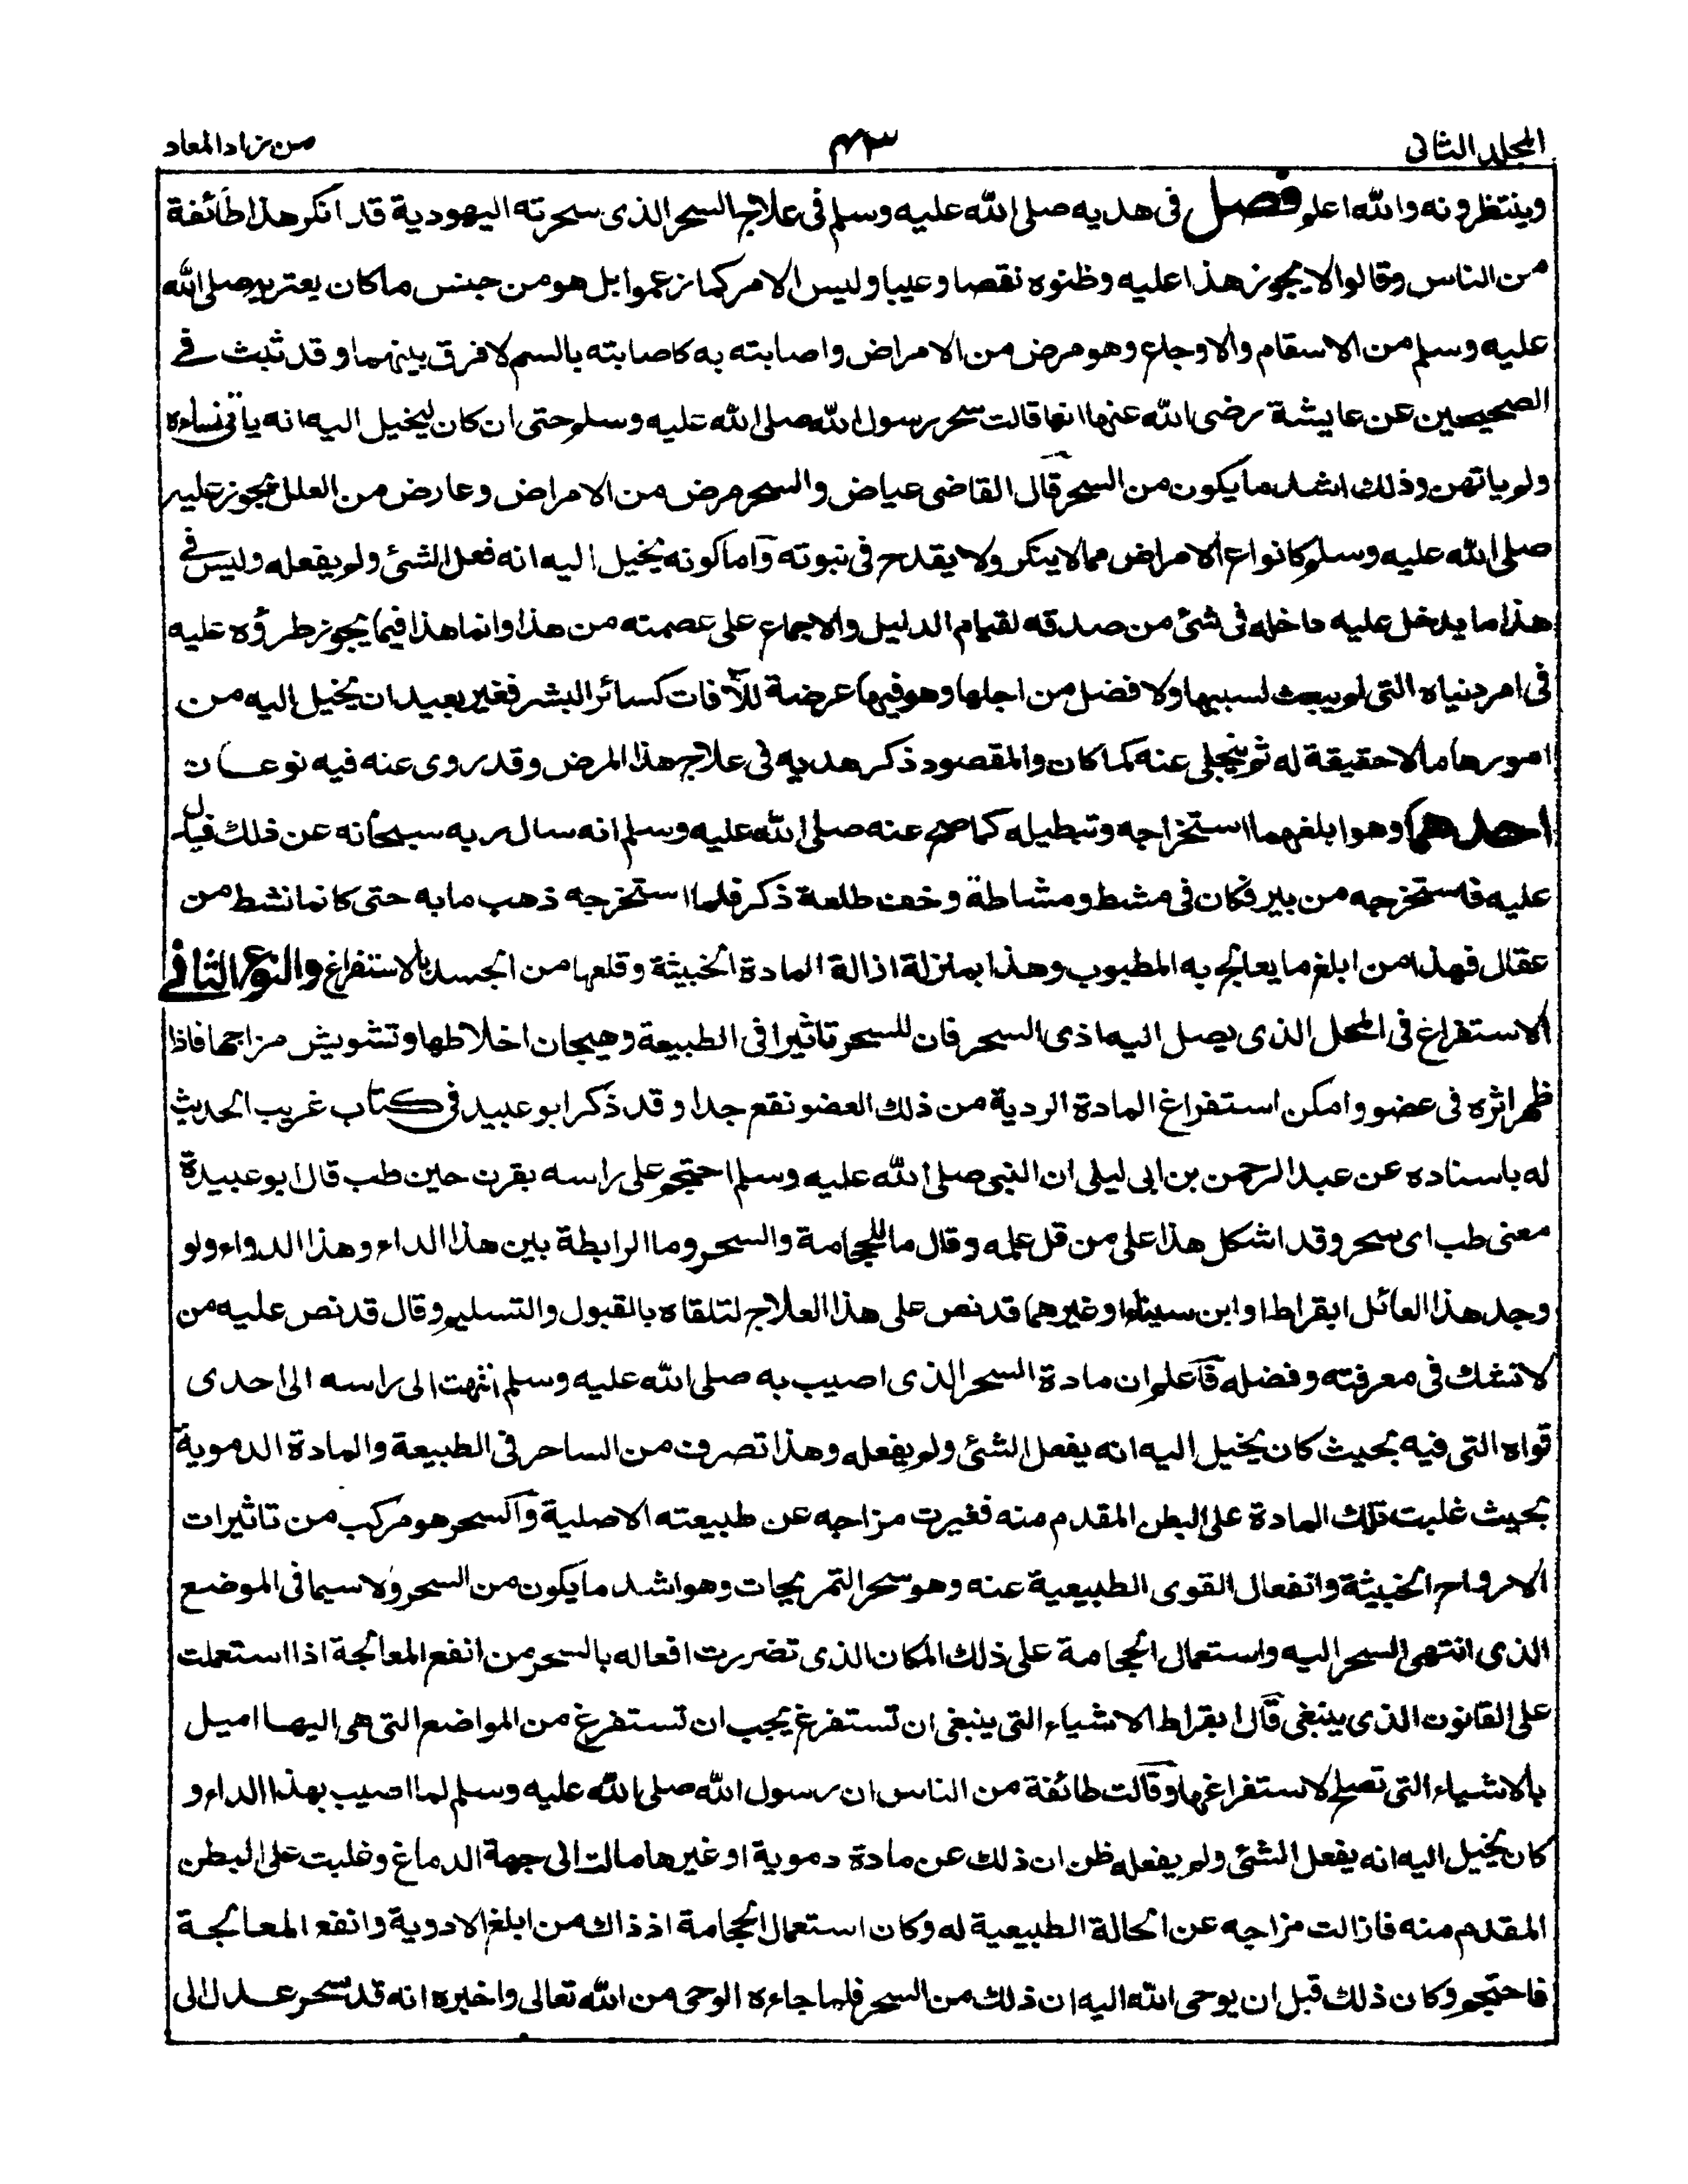 المجلد الثانى
٤٣
من زاد المعاد
وينتظرونه والله اعلم فصل فى هديه صلى الله عليه وسلم فى علاج السحر الذى سحرته اليهودية قد انكر هذا طائفة
من الناس وقالوا لا يجوز هذا عليه وظنوه نقصا وعيبا وليس الامر كما زعموا بل هو من جنس ما كان يعتريه صلى الله
عليه وسلم من الاسقام والاوجاع وهو مرض من الامراض واصابته به كاصابته بالسم لا فرق بينهما وقد ثبت فے
الصحيحين عن عايشة رضى الله عنها انها قالت سحر رسول الله صلى الله عليه وسلم حتى ان كان ليخيل اليه انه ياتى نساءه
ولم ياتهن وذلك اشد ما يكون من السحر قال القاضى عياض والسحر مرض من الامراض وعارض من العلل يجوز عليه
صلى الله عليه وسلم كانواع الامراض مما لا ينكر ولا يقدح فى نبوته واما كونه يخيل اليه انه فعل الشئ ولم يفعله وليس فے
هذا ما يدخل عليه داخله فى شئ من صدقه لقيام الدليل والاجماع على عصمته من هذا وانما هذا فيما يجوز طرؤه عليه
فى امر دنياه التى لم يبعث لسببها ولا فضل من اجلها وهو فيها عرضة للآفات كسائر البشر فغير بعيد ان يخيل اليه من
امورها ما لا حقيقة له ثم ينجلى عنه كما كان والمقصود ذكر هديه فى علاج هذا المرض وقد روى عنه فيه نوعان
احدهما وهو ابلغهما استخراجه وتبطيله كما صح عنه صلى الله عليه وسلم انه سال ربه سبحانه عن ذلك فدل
عليه فاستخرجه من بير فكان فى مشط ومشاطة وخف طلعة ذكر فلما استخرجه ذهب ما به حتى كانما نشط من
عقال فهذا من ابلغ ما يعالج به المطبوب وهذا بمنزلة ازالة المادة الخبيثة وقلعها من الجسد بالاستفراغ والنوع الثانى
الاستفراغ فى المحل الذى يصل اليه اذى السحر فان للسحر تاثيرا فى الطبيعة وهيجان اخلاطها وتشويش مزاجها فاذا
ظهر اثره فى عضو وامكن استفراغ المادة الردية من ذلك العضو نفع جدا وقد ذكر ابو عبيد فى كتاب غريب الحديث
له باسناده عن عبد الرحمن بن ابى ليلى ان النبى صلى الله عليه وسلم احتجم على راسه بقرن حين طب قال ابو عبيدة
معنى طب اى سحر وقد اشكل هذا على من قل علمه وقال ما للحجامة والسحر وما الرابطة بين هذا الداء وهذا الدواء ولو
وجد هذا القائل ابقراط او ابن سيناء او غيرهما قد نص على هذا العلاج لتلقاه بالقبول والتسليم وقال قد نص عليه من
لا تشك فى معرفته وفضله فاعلم ان مادة السحر الذى اصيب به صلى الله عليه وسلم انتهت الى راسه الى احدى
قواه التى فيه بحيث كان يخيل اليه انه يفعل الشئ ولم يفعله وهذا تصرف من الساحر فى الطبيعة والمادة الدموية
بحيث غلبت تلك المادة على البطن المقدم منه فغيرت مزاجه عن طبيعته الاصلية والسحر هو مركب من تاثيرات
الارواح الخبيثة وانفعال القوى الطبيعية عنه وهو سحر التمريجات وهو اشد ما يكون من السحر ولا سيما فى الموضع
الذى انتهى السحر اليه واستعمال الحجامة على ذلك المكان الذى تضررت افعاله بالسحر من انفع المعالجة اذا استعملت
على القانون الذى ينبغى قال ابقراط الاشياء التى ينبغى ان تستفرغ يجب ان تستفرغ من المواضع التى هى اليها اميل
بالاشياء التى تصلح لاستفراغها وقالت طائفة من الناس ان رسول الله صلى الله عليه وسلم لما اصيب بهذا الداء و
كان يخيل اليه انه يفعل الشئ ولم يفعله ظن ان ذلك عن مادة دموية او غيرها مالت الى جهة الدماغ وغلبت على البطن
المقدم منه فازالت مزاجه عن الحالة الطبيعية له وكان استعمال الحجامة اذ ذاك من ابلغ الادوية وانفع المعالجة
فاحتجم وكان ذلك قبل ان يوحى الله اليه ان ذلك من السحر فلما جاءه الوحى من الله تعالى واخبره انه قد سحر عدل الى